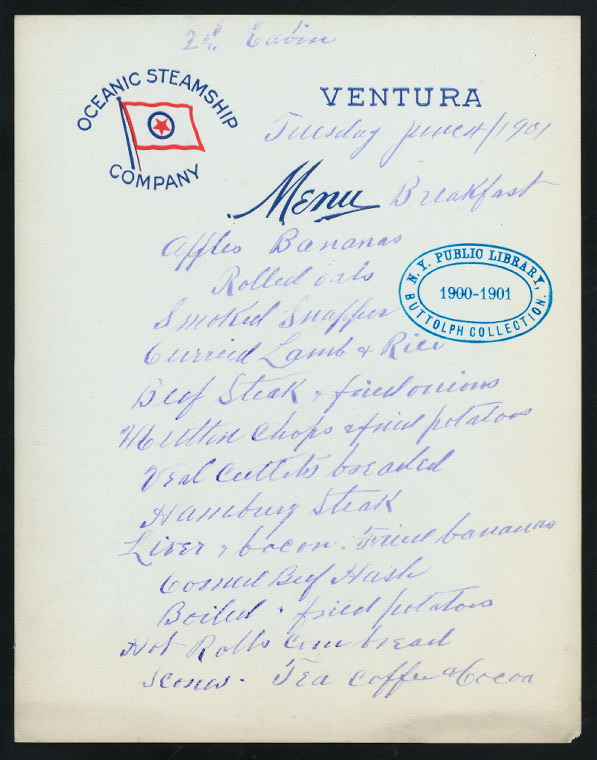 2d. Cabin
OCEANIC STEAMSHIP
COMPANY
VENTURA
Tuesday June 4/1901
Menu Breakfast
Apples Bananas
Rolled oats
Smoked Snapper
N.Y. PUBLIC LIBRARY,
1900-1901
BUTTOLPH COLLECTION.
Curried Lamb & Rice
Beef Steak & fried onions
Mutton Chops & fried potatoes
Veal Cutlets breaded
Hamburg Steak
Liver & bacon. Fried bananas
Corned Beef Hash
Boiled · fried potatoes
Hot Rolls Corn bread
Scones. Tea Coffee & Cocoa